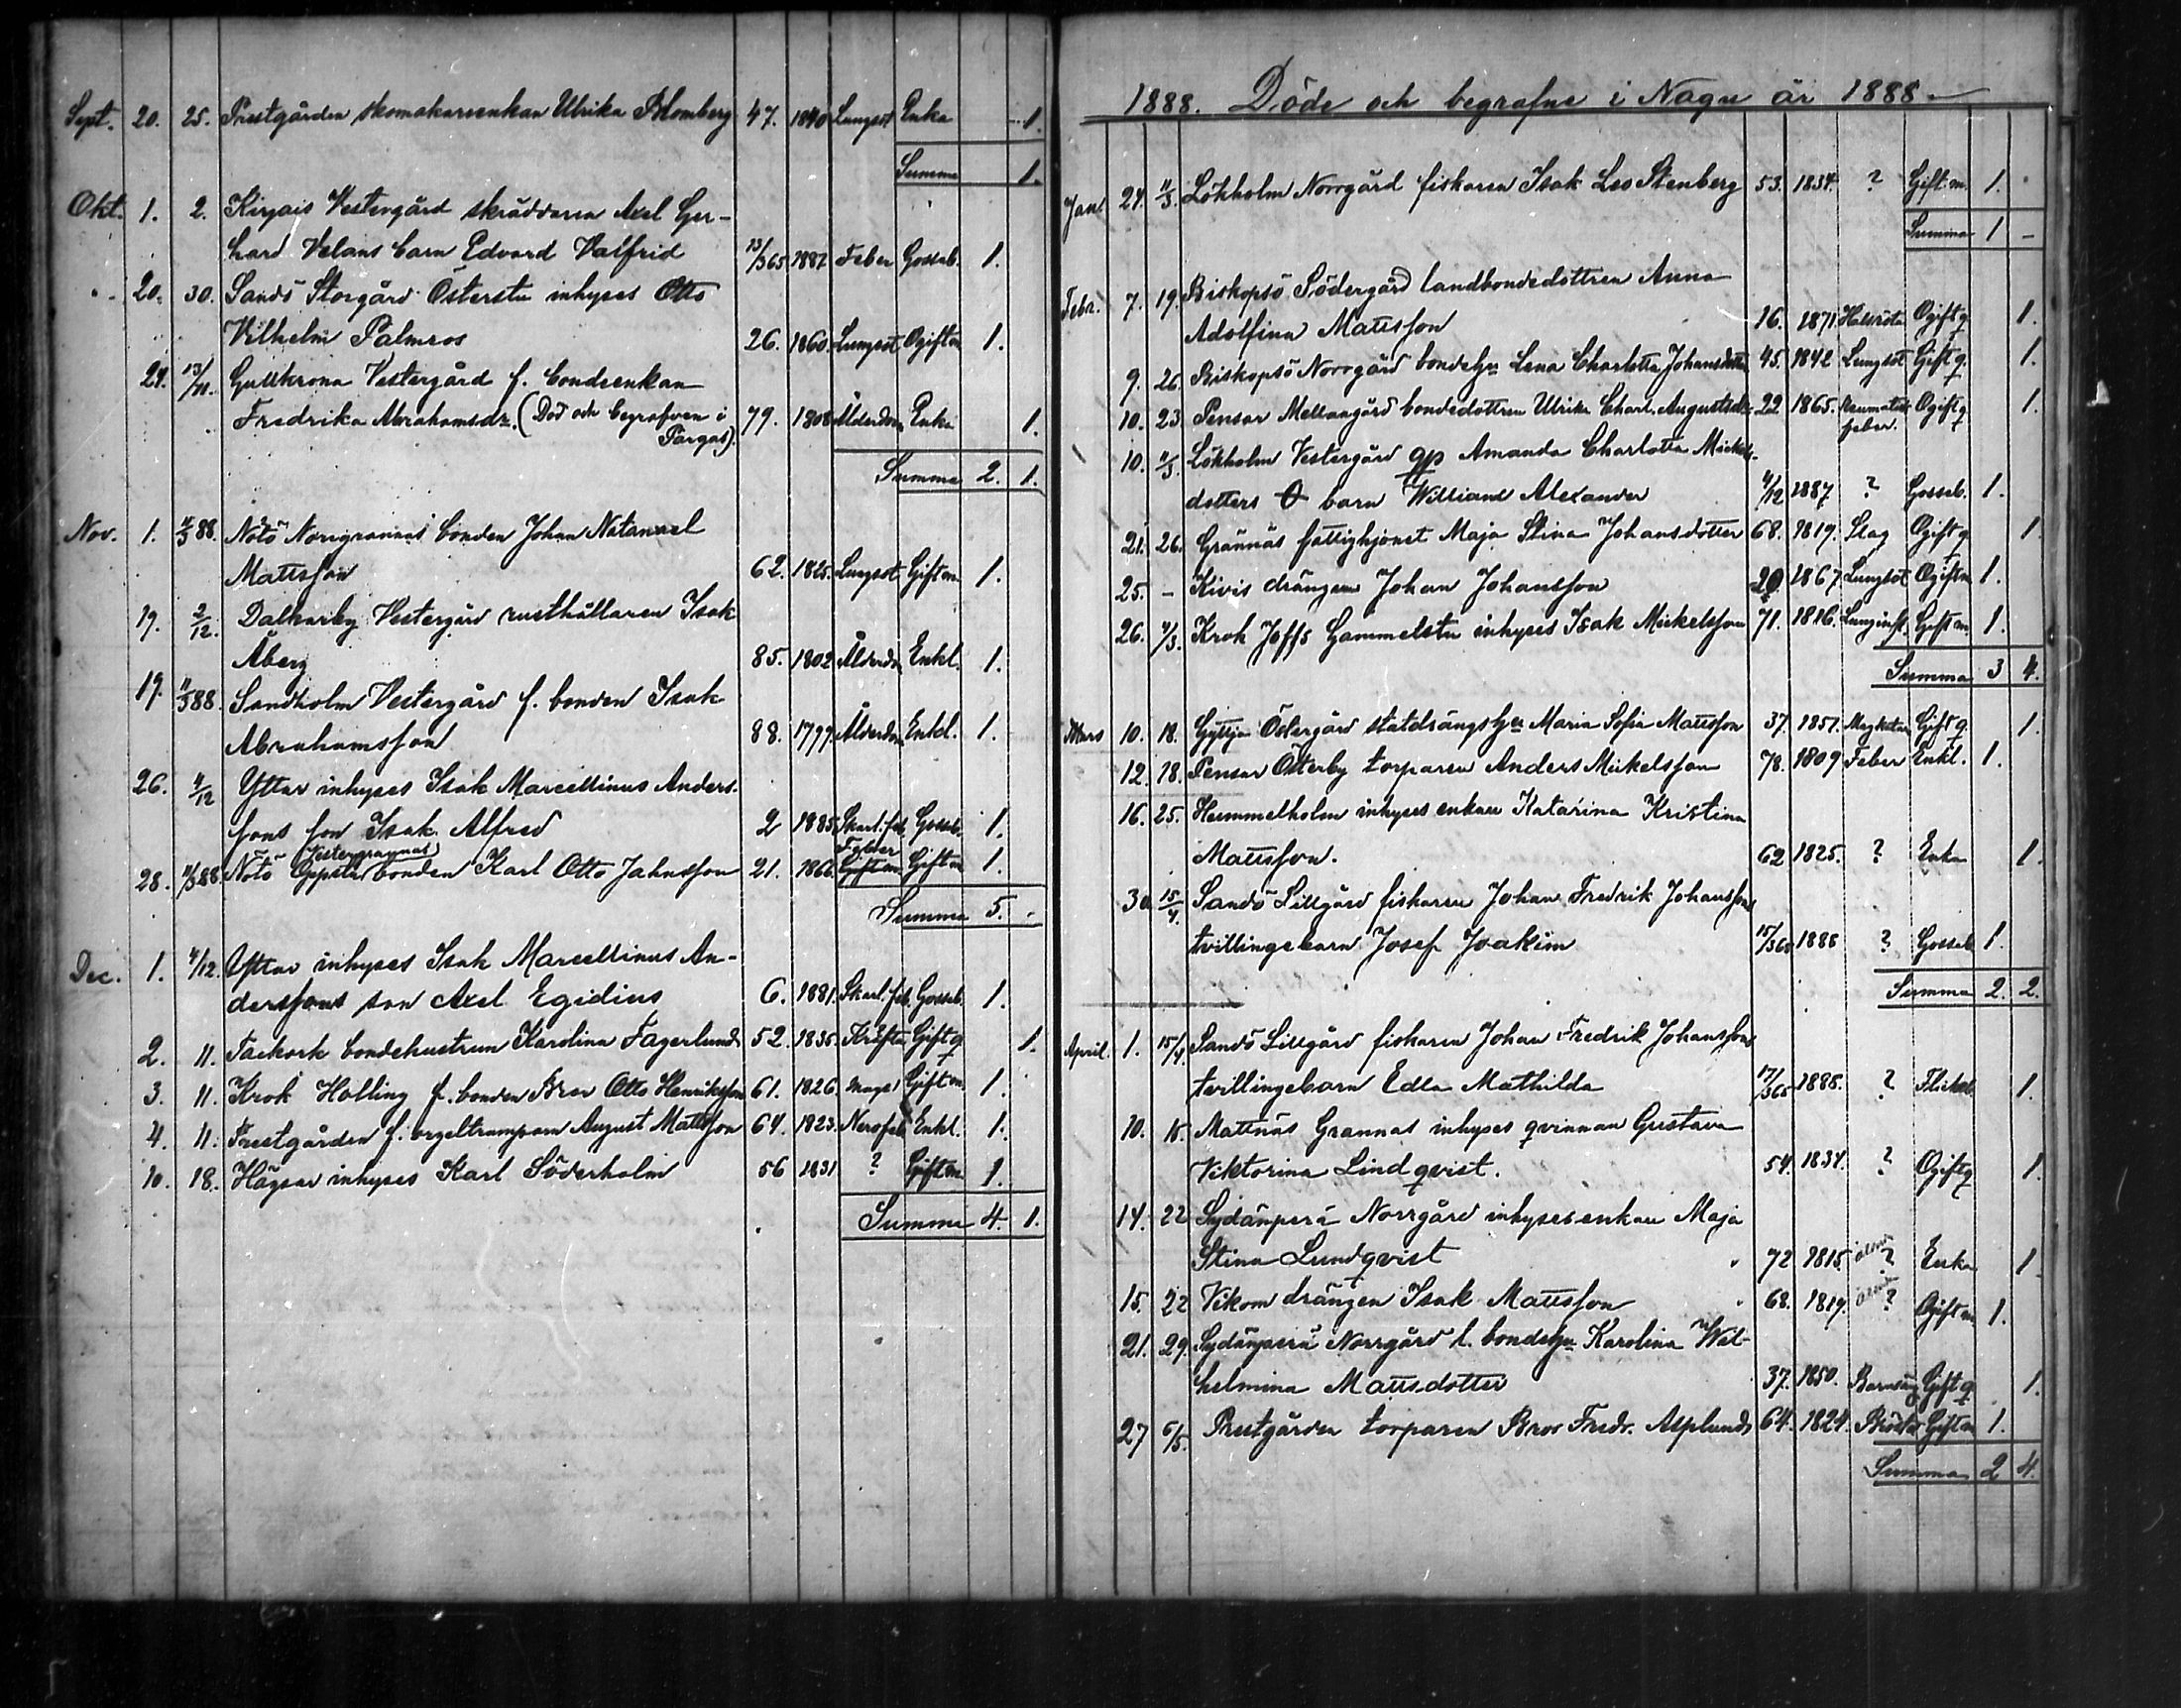 Sept. 20. 25. Prestgården skomakareenkan Ulrika Blomberg 47. 1840 Lungsot Enka 1.
Summa 1.
Okt. 1. 2. Kirjais Vestergård skräddaren Axel Ger-
hard Velans barn Edvard Valfrid 13/365 1887 Feber Gosseb. 1.
20. 30. Sandö Storgård Österstu inhyses Otto
Vilhelm Palmros 26. 1860. Lungsot Ogift m 1.
24. 13/11. Gullkrona Vestergård f. bondeenkan
Fredrika Abrahamsdr. (Död och begrafven i 79. 1808 Ålderdom Enka 1.
Pargas).
Summa 2. 1.
Nov. 1. 11/3 88. Nötö Norrgrannas bonden Johan Natanael
Mattsson 62. 1825. Lungsot Gift m. 1.
19. 2/12. Dalkarby Vestergård rusthållaren Isak
Åberg 85. 1802 Ålderdom Enkl. 1.
19. 11/3 88. Sandholm Vestergård f. bonden Isak
Abrahamsson 88. 1799. Ålderdom Enkl. 1.
26. 4/12 Yttar inhyses Isak Marcellinus Anders-
sons son Isak Alfred 2 1885 Skarl. feb. Gosseb. 1.
Vestergrannas Feber
28. 11/3 88. Nötö bonden Karl Otto Jahnsson 21. 1866. Gift m Gift m 1.
Summa 5. -
Dec. 1. 4/12. Yttar inhyses Isak Marcellinus An-
derssons son Axel Egidius 6. 1881. Skarl. feb. Gosseb. 1.
2. 11. Tackork bondehustrun Karolina Fagerlund 52. 1835. Kräfta Gift q 1.
3. 11. Krok Holling f. bonden Bror Otto Henriksson 61. 1826. Gift m. 1.
4. 11. Prestgården f. orgeltramparn August Mattsson 64. 1823. Nervfeb. Enkl. 1.
10. 18. Högsar inhyses Karl Söderholm 56 1831 ? Gift m. 1.
Summa 4. 1.
1888. Döde och begrafne i Nagu år 1888.
Jan. 24. 11/3. Lökholm Norrgård fiskaren Isak Leo Stenberg 53. 1834. ? Gift m. 1.
Summa 1 -
Febr. 7. 19. Biskopsö Södergård landbondedottren Anna
Adolfina Mattsson 16. 1871. Halsröta Ogift q. 1.
9. 26. Biskopsö Norrgård bondehu Lena Charlotta Johansdotter 45. 1842 Lungsot Gift q. 1.
10. 23. Pensar Mellangård bondedottren Ulrika Charl. Augustsdr. 22. 1865. Reumatisk Ogift q 1.
feber.
10. 11/3. Lökholm Vestergård qp Amanda Charlotta Mickels-
dotters barn William Alexander 4/12 1887 ? Gosseb. 1.
21. 26. Grännäs fattighjonet Maja Stina Johansdotter 68. 1819. Slag Ogift q 1.
25. - Kivis drängen Johan Johansson 20. 1867 Lungsot Ogift m 1.
26. 4/3. Krok Joffs Gammelstu inhyses Isak Mickelsson 71. 1816. Lunginfl. Gift m. 1.
Summa 3 4.
Mars 10. 18. Gyttja Östergård statdrängshu Maria Sofia Mattsson 37. 1851. Gift q. 1.
12. 18. Pensar Österby torparen Anders Mickelsson 78. 1809 Feber Enkl. 1.
16. 25. Hummelholm inhyses enkan Katarina Kristina
Mattsson. 62 1825. ? Enka 1.
30. 15/4. Sandö Lillgård fiskaren Johan Fredrik Johanssons
tvillingebarn Josef Joakim 15/365 1888 ? Gosseb 1.
Summa 2. 2.
April. 1. 15/4. Sandö Lillgård fiskaren Johan Fredrik Johanssons
tvillingebarn Edla Mathilda 17/365 1888. ? Flickeb. 1.
10. 15. Mattnäs Grannas inhyses qvinnan Gustava
Viktorina Lindqvist. 54. 1834. ? Ogift q 1.
14. 22 Sydänperä Norrgård inhyses enkan Maja
Stina Lundqvist 72 1815 ? Enka 1.
15. 22 Vikom drängen Isak Mattsson 68. 1819. ? Ogift m 1.
21. 29. Sydänperä Norrgård l. bondehu Karolina Wil-
helmina Mattsdotter 37. 1850. Barnsäng Gift q 1.
27 6/5. Prestgården torparen Bror Fredr. Asplund 64. 1824. Gift m 1.
Summa 2 4.